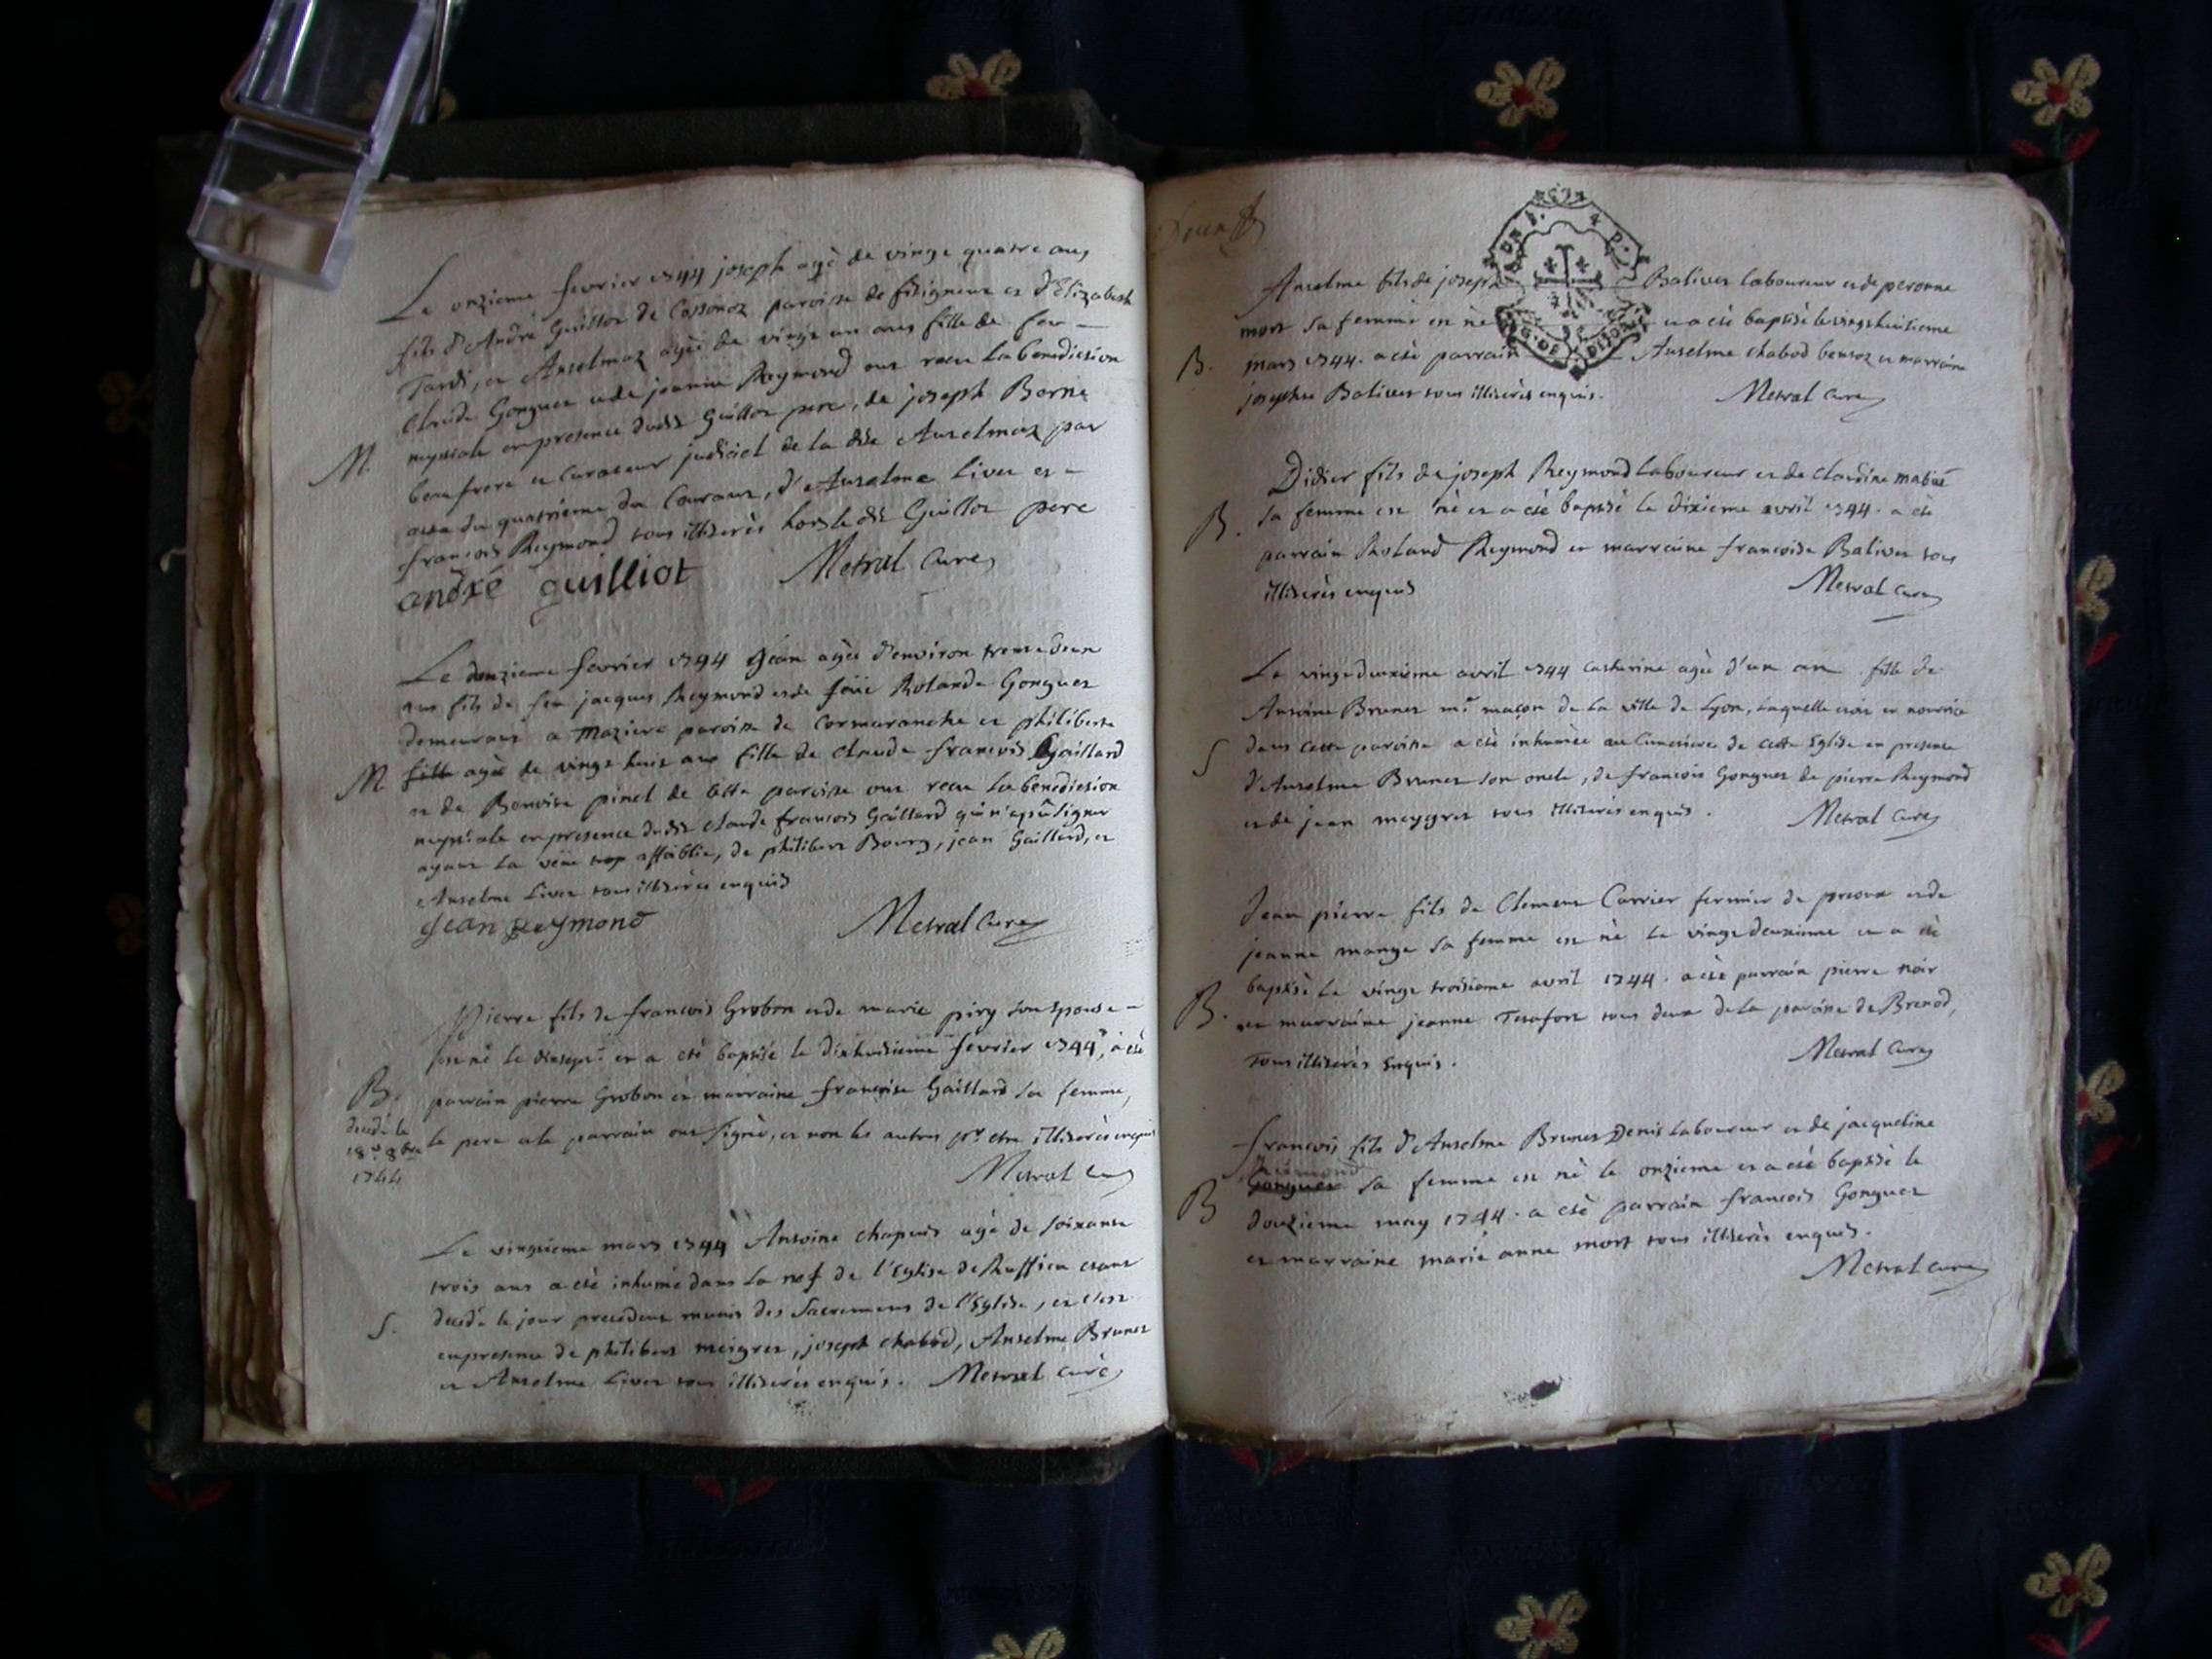 Le onzieme fevrier 1744 joseph agé de vingt quatre ans
fils d'André Guillot de Cossonoz paroisse de fitignieux et d'Elizabeth
Tardi, et Anselmaz agée de vingt un ans fille de feu
Claude Gonguet et de jeanne Reymond ont recu la benediction
M. nuptiale en presence dudit Guillot pere, de joseph Borne
beaufrere et curateur judiciel de la dite Anselmaz par
acte du quatrieme du Courant, d'Anselme Livet et
francois Reymond tous illiterès hors le dit Guillot pere
andré guilliot Metral Curé
Le douzieme fevrier 1744 Jean agée d'environ trente deux
ans fils de feu jacques Reymond et de feüe Rolande Gonguet
demeurant a Maziere paroisse de Cormaranche et philiberte
M. fille agée de vingt huit ans fille de Claude francois Gaillard
et de Benoite pinel de cette paroisse ont recu la benediction
nuptiale en presence dudit Claude francois Gaillard qui n'a pû signer
ayant la veüe trop affoiblie, de philibert Bourg, jean Gaillard, et
Anselme Livet tous illiterès enquis
jean Reymond Metral Curé
Pierre fils de francois Grobon et de marie piry son Epouse
est né le dixsept.e et a eté baptisé le dixhuitieme fevrier 1744, a eté
B. parrain pierre Grobon et marraine françoise Gaillard sa femme,
decedé le le pere et le parrain ont signé, et non les autres p.r etre illiterès enquis
18.e 8bre
1744 Metral Curé
Le vingtieme mars 1744 Antoine chapuis agé de soixante
trois ans a eté inhumé dans la nef de l'Eglise de Ruffieu etant
S. decedé le jour precedent munis des Sacremens de l'Eglise, et c'est
en presence de philibert meigret, joseph chabod, Anselme Brunet
et Anselme Livet tous illiterés enquis. Metral curé
Anselme fils de joseph Balivet laboureur et de peronne
mort sa femme est né et a eté baptisé le vingthuitieme
B. mars 1744. a eté parrain Anselme chabod bensoz et marraine
josephte Balivet tous illiterès enquis. Metral Curé
Didier fils de joseph Reymond laboureur et de Claudine
B. sa femme est né et a eté baptisé le dixieme avril 1744. a eté
parrain Roland Reymond et marraine francoise Balivet tous
illiterès enquis Metral Curé
Le vingt deuxieme avril 1744 Catherine agée d'un an fille de
Antoine Brunet m.e maçon de la ville de Lyon, laquelle etoit en nourrice
S dans cette paroisse a eté inhumée au Cimetiere de cette Eglise en presence
d'Anselme Brunet son oncle, de francois Gonguet de pierre Reymond
et de jean meygret tous illiterés enquis. Metral Curé
Jean pierre fils de Clement Carrier fermier de et de
jeanne mange sa femme est né le vingt deuxieme et a eté
baptisé le vingt troisieme avril 1744. a eté parrain pierre noir
B. et marraine jeanne tous deux de la paroisse de Brenod,
Tous illiterés Enquis. Metral Curé
francois fils d'Anselme Brunet Denis laboureur et de jacqueline
Reimond
Gonguet sa femme est né le onzieme et a eté baptisé le
B douzieme may 1744. a eté parrain francois Gonguet
et marraine marie anne mort tous illiterés enquis.
Metral Curé